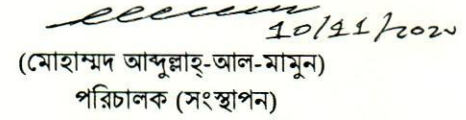 10/11/2020
(মোহাম্মদ আব্দুল্লাহ্-আল-মামুন)
পরিচালক (সংস্থাপন)